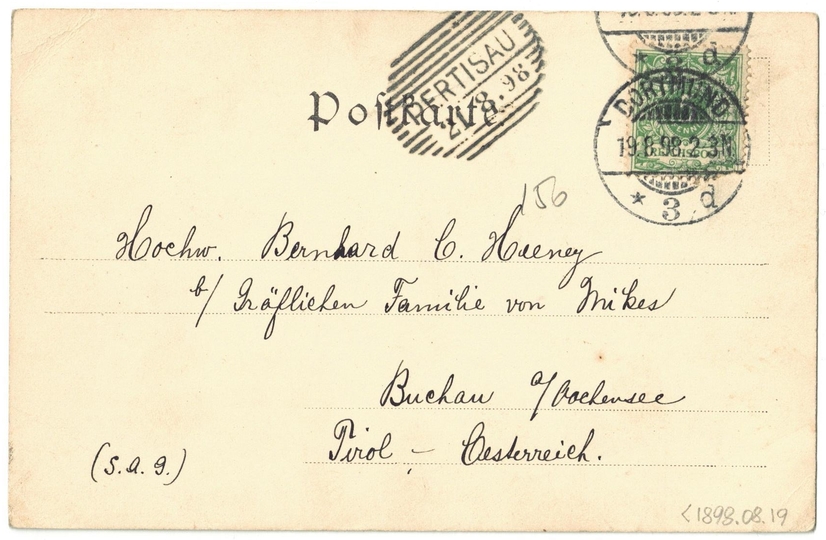 PERTISAU
21.8.98
Postkarte
* 3 d
DORTMUND
19.8.98.2-3N
* 3 d
156
Hochw. Bernhard C. Haeney
b/ Gräflichen Familie von Mikes
Buchau a/Aachensee
Tirol – Oesterreich.
(S.a.g.)
<1898.08.19